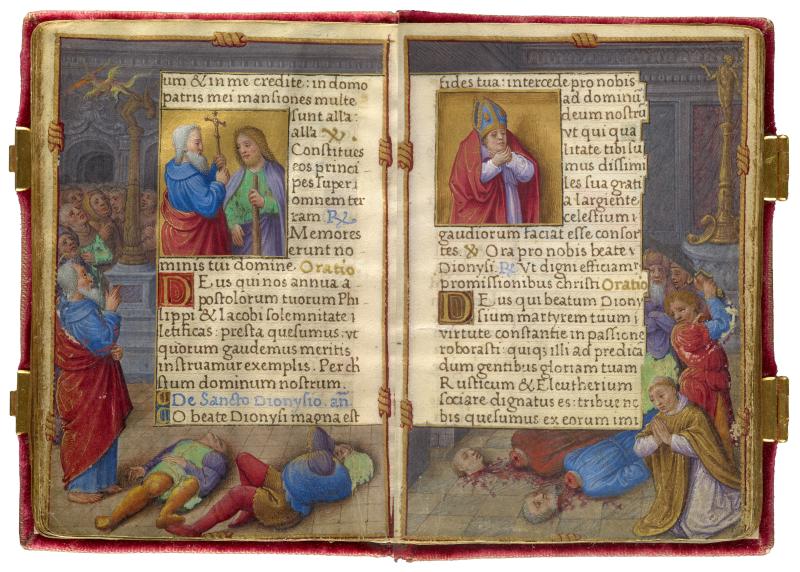 um & in me credite: in domo
patris mei mansiones multe
sunt alľa:
alľa ℣.
Constitues
eos princi
pes super i
omnem ter
ram ℟.
Memores
erunt no
minis tui domine. Oratio
Deus qui nos annua a
postolorum tuorum Phi
lippi & Iacobi solemnitate l
etificas: presta quesumus. vt
quorum gaudemus meritis
instruamur exemplis. Per ch
stum dominum nostrum.
De Sancto Dionysio. añ.
O beate Dionysi magna est
fides tua: intercede pro nobis
ad dominũ
deum nostrũ
vt qui qua
litate tibi su
mus dissimi
les sua grati
a largiente
celestium i
gaudiorum faciat esse consor
tes. ℣. Ora pro nobis beate i
Dionysi. ℟. Vt digni efficiamr
promissionibus christi Oratio
Deus qui beatum Diony
sium martyrem tuum i
virtute constantie in passione
roborasti: quiqs illi ad predica
dum gentibus gloriam tuam
Rusticum & Eleutherium
sociare dignatus es: tribue no
bis quesumus ex eorum imi